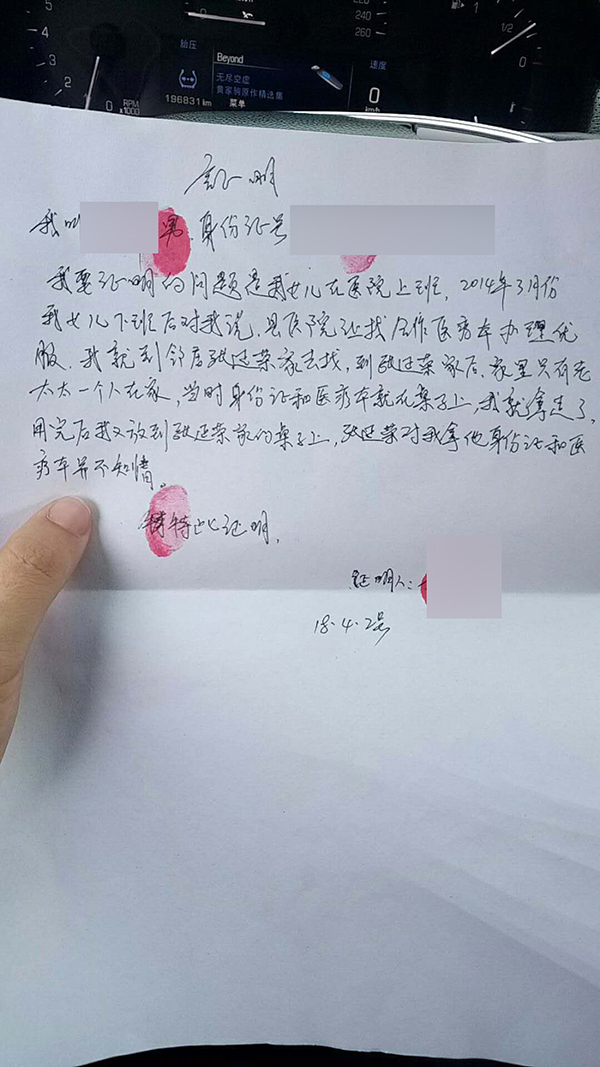 5
4
3
2
1
0
RPM
x1000
220
240
260
1/2
0
胎压
196931 km
Beyond
无尽空虚
黄家驹原作精选集
菜单
速度
0
km/h
证明
我叫 男 身份证号
我要证明的问题是我女儿在医院上班，2014年3月份
我女儿下班后对我说，县医院让找合作医疗本办理优
服，我就到邻居张廷荣家去找，到张廷荣家后，家里只有老
太太一个人在家，当时身份证和医疗本就在桌子上，我就拿走了，
用完后我又放到张廷荣家的桌子上，张廷荣对我拿他身份证和医
疗本并不知情。
特此证明，
证明人：
18.4.2号